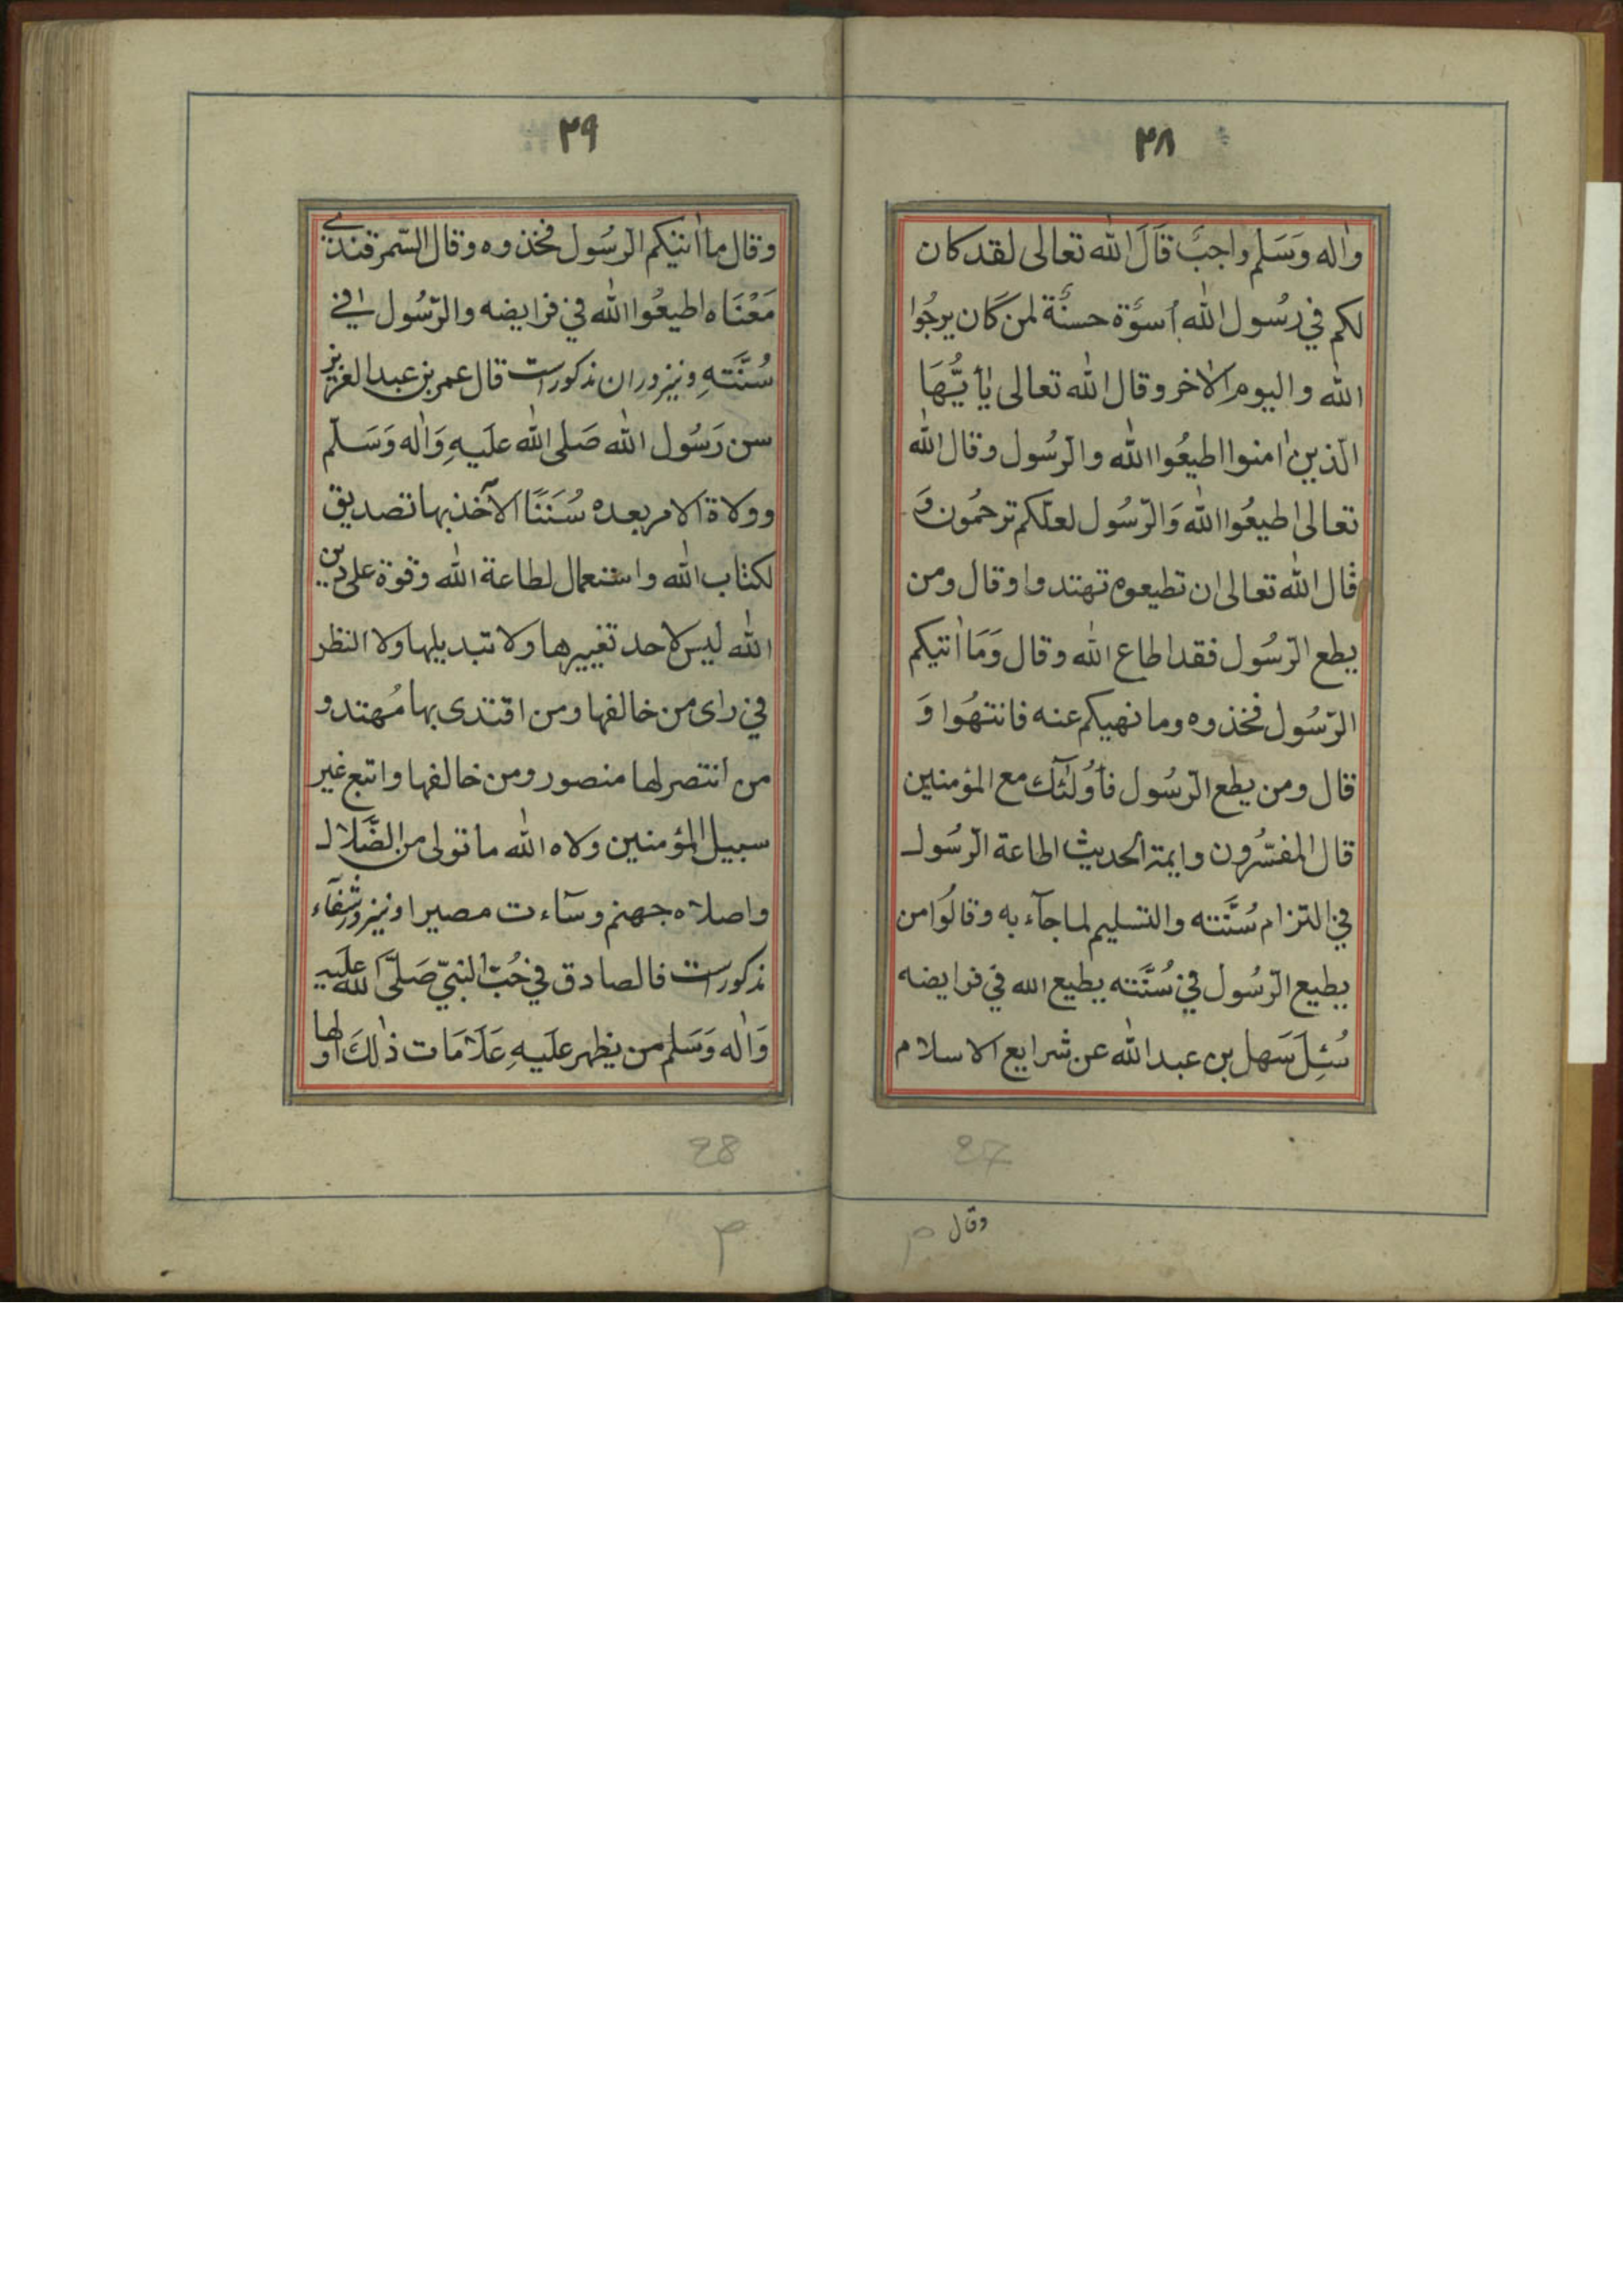 ٢٨
واٰله وَسَلم واجبٌ قَالَ الله تعالى لقد كان
لكم في رسُول الله اُسوَة حسنة لمن كَان يرجُوا
الله واليوم الاٰخر وقال الله تعالى يٰأيّهَا
الّذين اٰمنوا اطيعُوا الله والرسُول وقال الله
تعالى اطيعُوا الله وَالرّسُول لعلّكم ترحمُون وَ
قال الله تعالى ان تطيعوه تهتدوا وقال ومن
يطع الرّسُول فقد اطاع الله وقال وَمَا اٰتيكم
الرّسُول فخذوه وما نهيكم عنه فانتهُوا وَ
قال ومن يطع الرّسُول فأُولٰئك مع المؤمنين
قال المفسّرون وايمة الحديث اطاعة الرّسُول
في التزام سُنّته والتسليم لما جآء به وقالُوا من
يطيع الرّسُول في سُنَّته يطيع الله في فرايضه
سُئِلَ سَهل بن عبد الله عن شرايع الاسلام
27
وقال
٢٩
وقال ما اٰتيكم الرّسُول فخذوه وقال السّمرقندي
مَعْنَاه اطيعُوا الله في فرايضه والرّسُول في
سُنَّتهِ ونيز دران مذكورست قال عمر بن عبد العزيز
سن رَسُول الله صَلى الله عليهِ وَاٰله وَسَلّم
وولاة الامر بعده سُنَنًا الآخذ بها تصديق
لكتاب الله واستعمال لطاعة الله وقوة على دين
الله ليس لاحد تغييرها ولا تبديلها ولا النظر
في راى من خالفها ومن اقتدى بها مُهتد و
من انتصر لها منصور ومن خالفها واتبع غير
سبيل المؤمنين ولاه الله ما تولى من الضَّلال
واصلاه جهنم وسآءت مصيرا ونيز در شفآء
مذكورست فالصادق في حُبّ النبيّ صَلَّى الله عَليه
وَاٰله وَسَلم من يظهر عليهِ عَلَامَات ذٰلكَ اولها
28